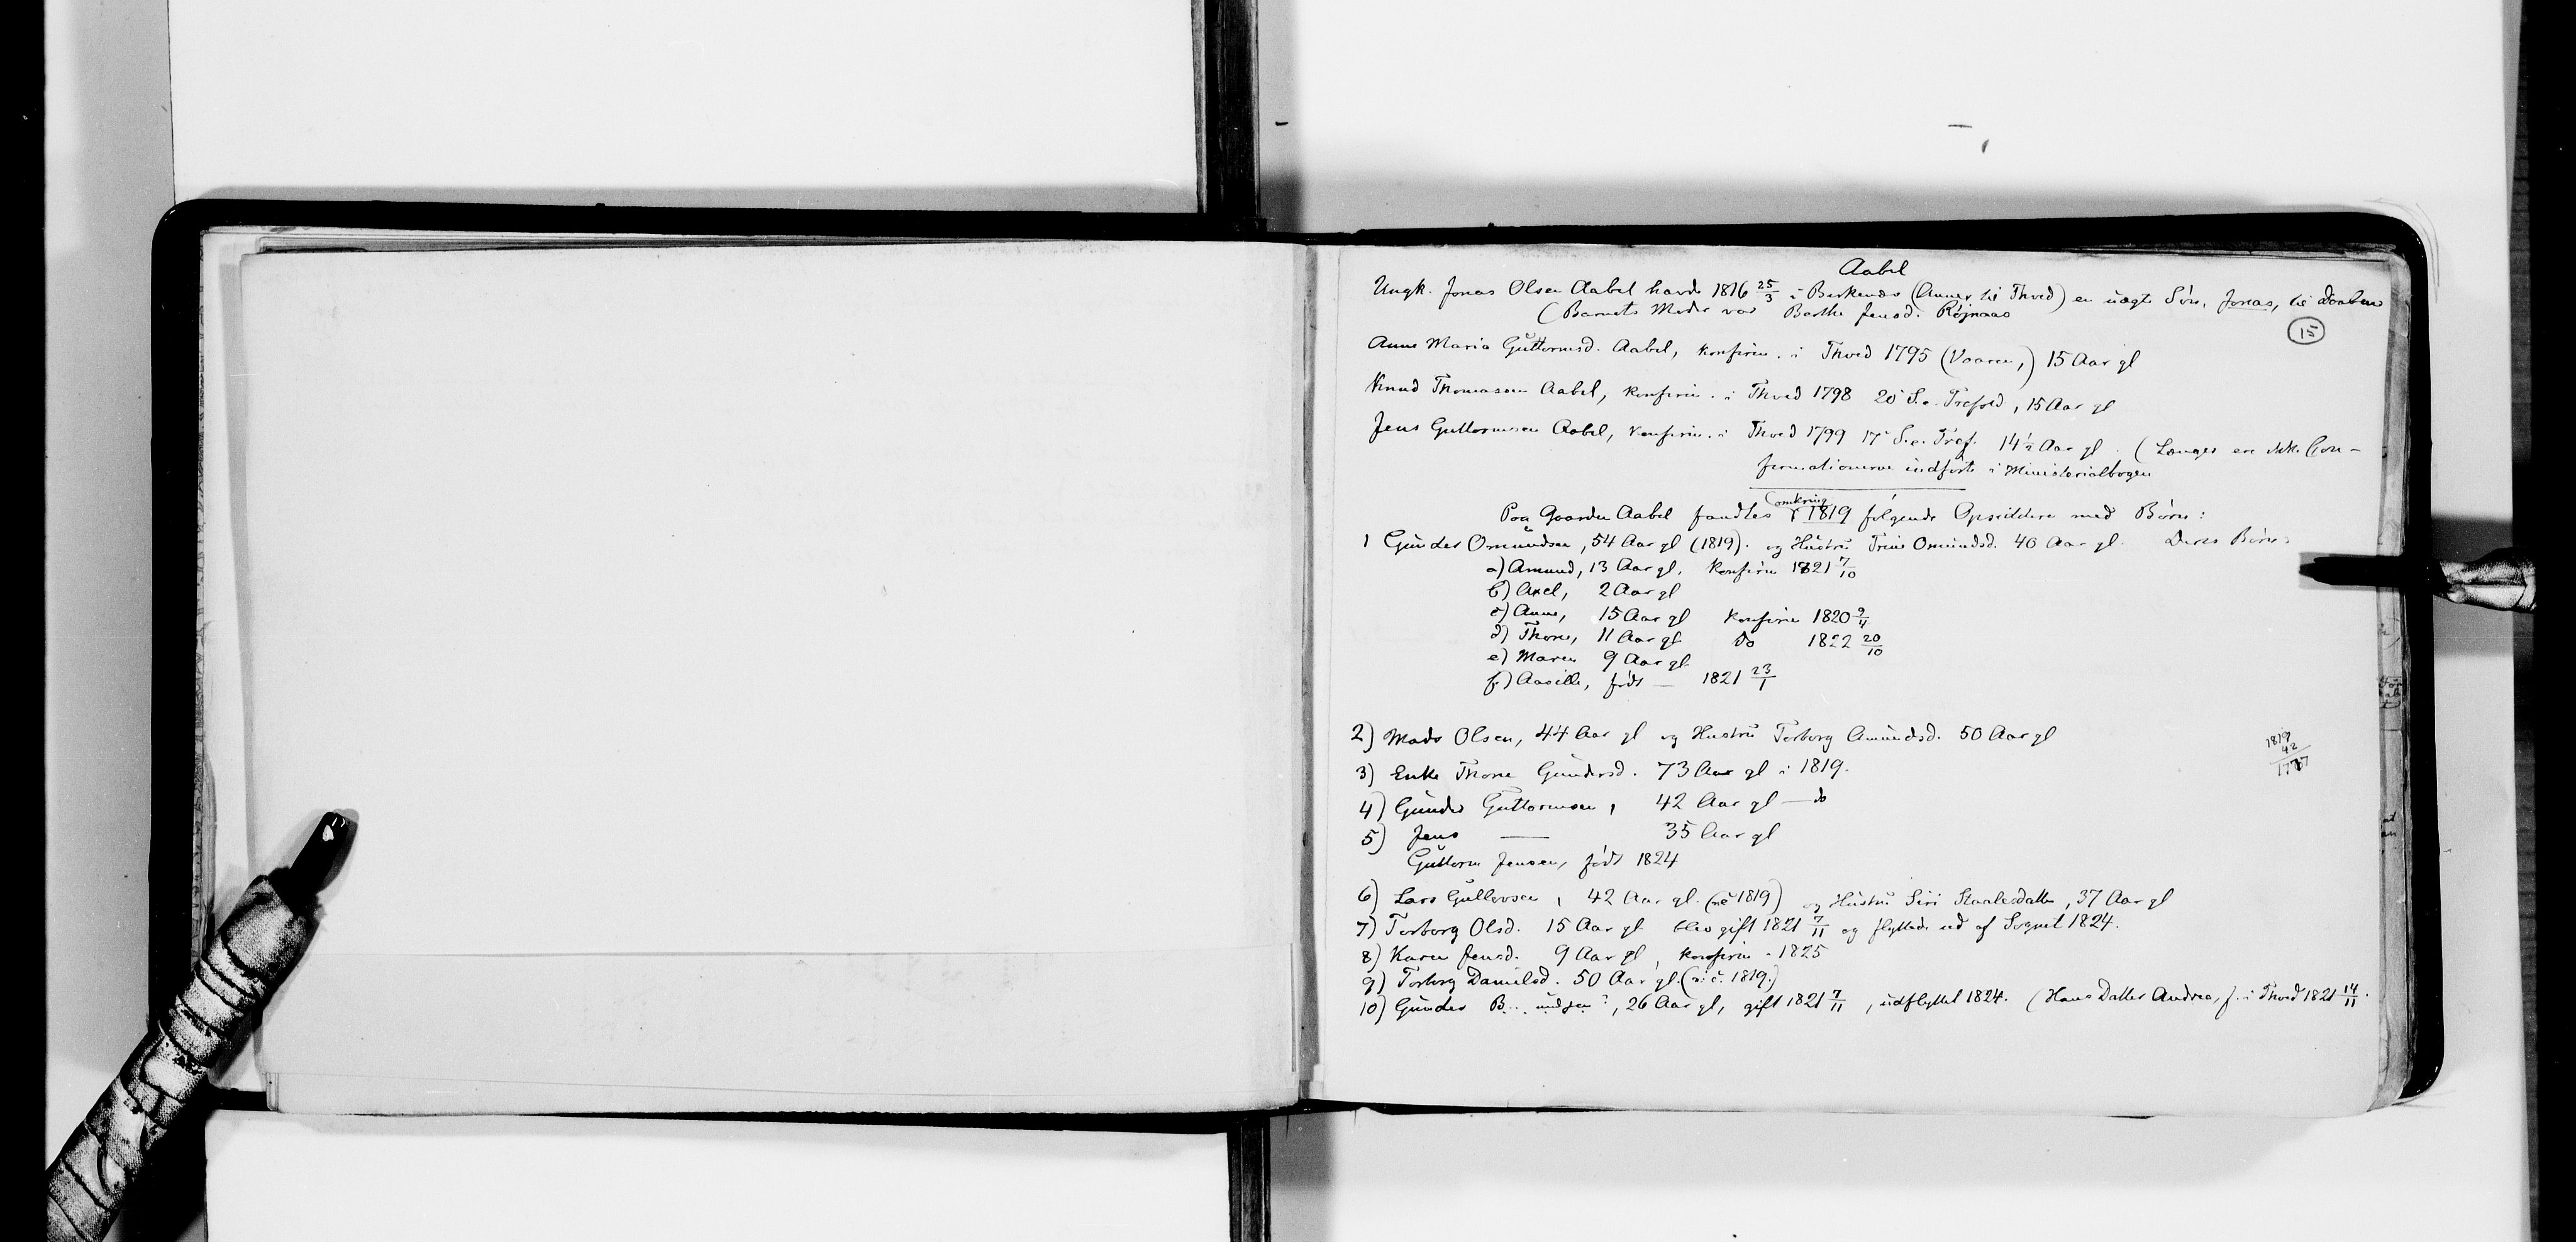 Aabel
Ungk. Jonas Olsen Aabel havde 1816 25/3 i Birkenæs (Annex til Thved) en uægte Søn, Jonas, til Daaben
(Barnets Moder var Berthe Jensd. Røjnaas
15
Anne Maria Guttormsd. Aabel, konfirm. i Thved 1795 (Vaaren,) 15 Aar gl
Knud Thomassen Aabel, konfirm. i Thved 1798 20 S.e. Trefold, 15 Aar gl
Jens Guttormsen Aabel, konfirm. i Thved 1799 17 S.e. Tref. 14½ Aar gl. (Længer ere ikke Con-
firmationerne indførte i Ministerialbogen
Paa Gaarden Aabel fandtes omkring 1819 følgende Opsiddere med Børn:
1 Gunder Omundsen, 54 Aar gl (1819). og Hustru Trine Omundsd. 40 Aar gl. Deres Børn:
a) Amund, 13 Aar gl, konfirm 1821 7/10
b) Axel, 2 Aar gl
c) Anne, 15 Aar gl konfirm 1820 9/4
d) Thone, 11 Aar gl do 1822 20/10
e) Maren 9 Aar gl
f) Aasille, født — 1821 23/1
2) Mads Olsen, 44 Aar gl og Hustru Torborg Amundsd. 50 Aar gl
1819
42
1777
3) Enke Thone Gundersd. 73 Aar gl i 1819.
4) Gunder Guttormsen, 42 Aar gl — do
5) Jens — 35 Aar gl
Guttorm Jensen, født 1824
6) Lars Gullovsen, 42 Aar gl. (i 1819) og Hustru Siri Staalesdatter, 37 Aar gl
7) Torborg Olsd. 15 Aar gl blev gift 1821 7/11 og flyttede ud af Sognet 1824.
8) Karen Jensd. 9 Aar gl, konfirm - 1825
9) Torborg Danielsd. 50 Aar gl. (i 1819.)
10) Gunder B... undsen?, 26 Aar gl, gift 1821 7/11, udflyttet 1824. (Hans Datter Andrea, f. i Thved 1821 14/11.